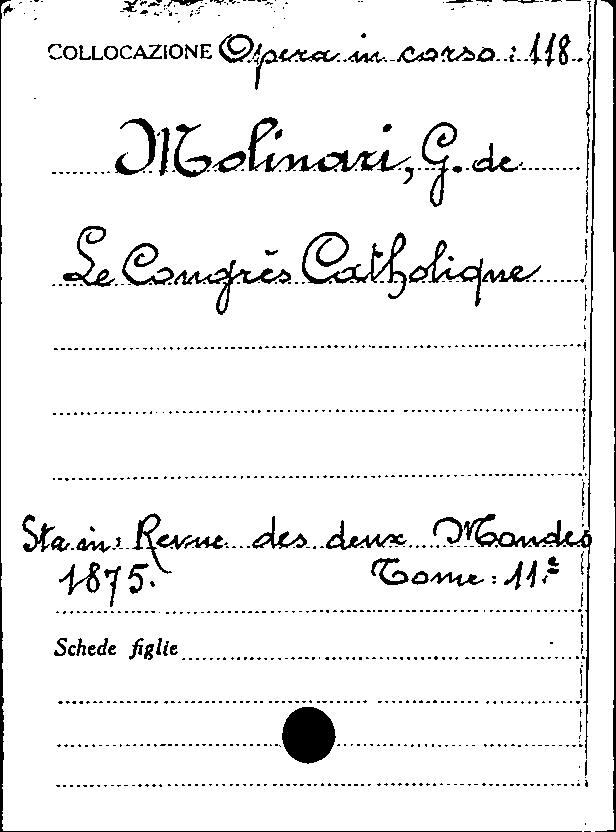 COLLOCAZIONE Opera in corso: 118.
Molinari, G. de
Le Congrès Catholique
Sta in: Revue des deux Mondes
1875. Tome: 11.e
Schede figlie